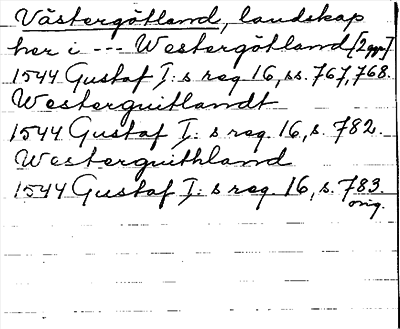 Västergötland, landskap
her i --- Westergötland [2 ggr]
1544 Gustaf I:s reg 16, ss. 767, 768.
Westerguitlandt
1544 Gustaf I:s reg. 16, s. 782.
Westerguithland
1544 Gustaf I:s reg. 16, s. 783.
orig.